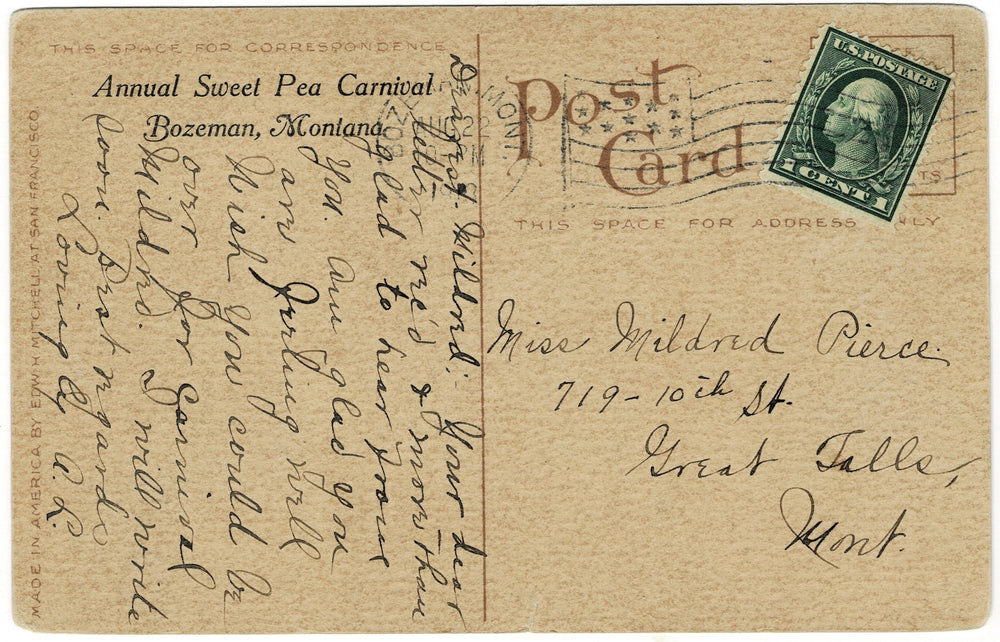 THIS SPACE FOR CORRESPONDENCE
Annual Sweet Pea Carnival
Bozeman, Montana
Dearest Mildred; - Your dear
letter rec'd & more than
glad to hear from
you. Am glad you
are feeling well
Wish you could be
over for Carnival
Mildred. I will write
soon. Best regards
Lovingly A. L.
MADE IN AMERICA BY EDW. H. MITCHELL AT SAN FRANCISCO.
Post
Card
MONT.
22
PM
U.S. POSTAGE
1 CENT 1
THIS SPACE FOR ADDRESS ONLY
Miss Mildred Pierce.
719-10th St.
Great Falls,
Mont.